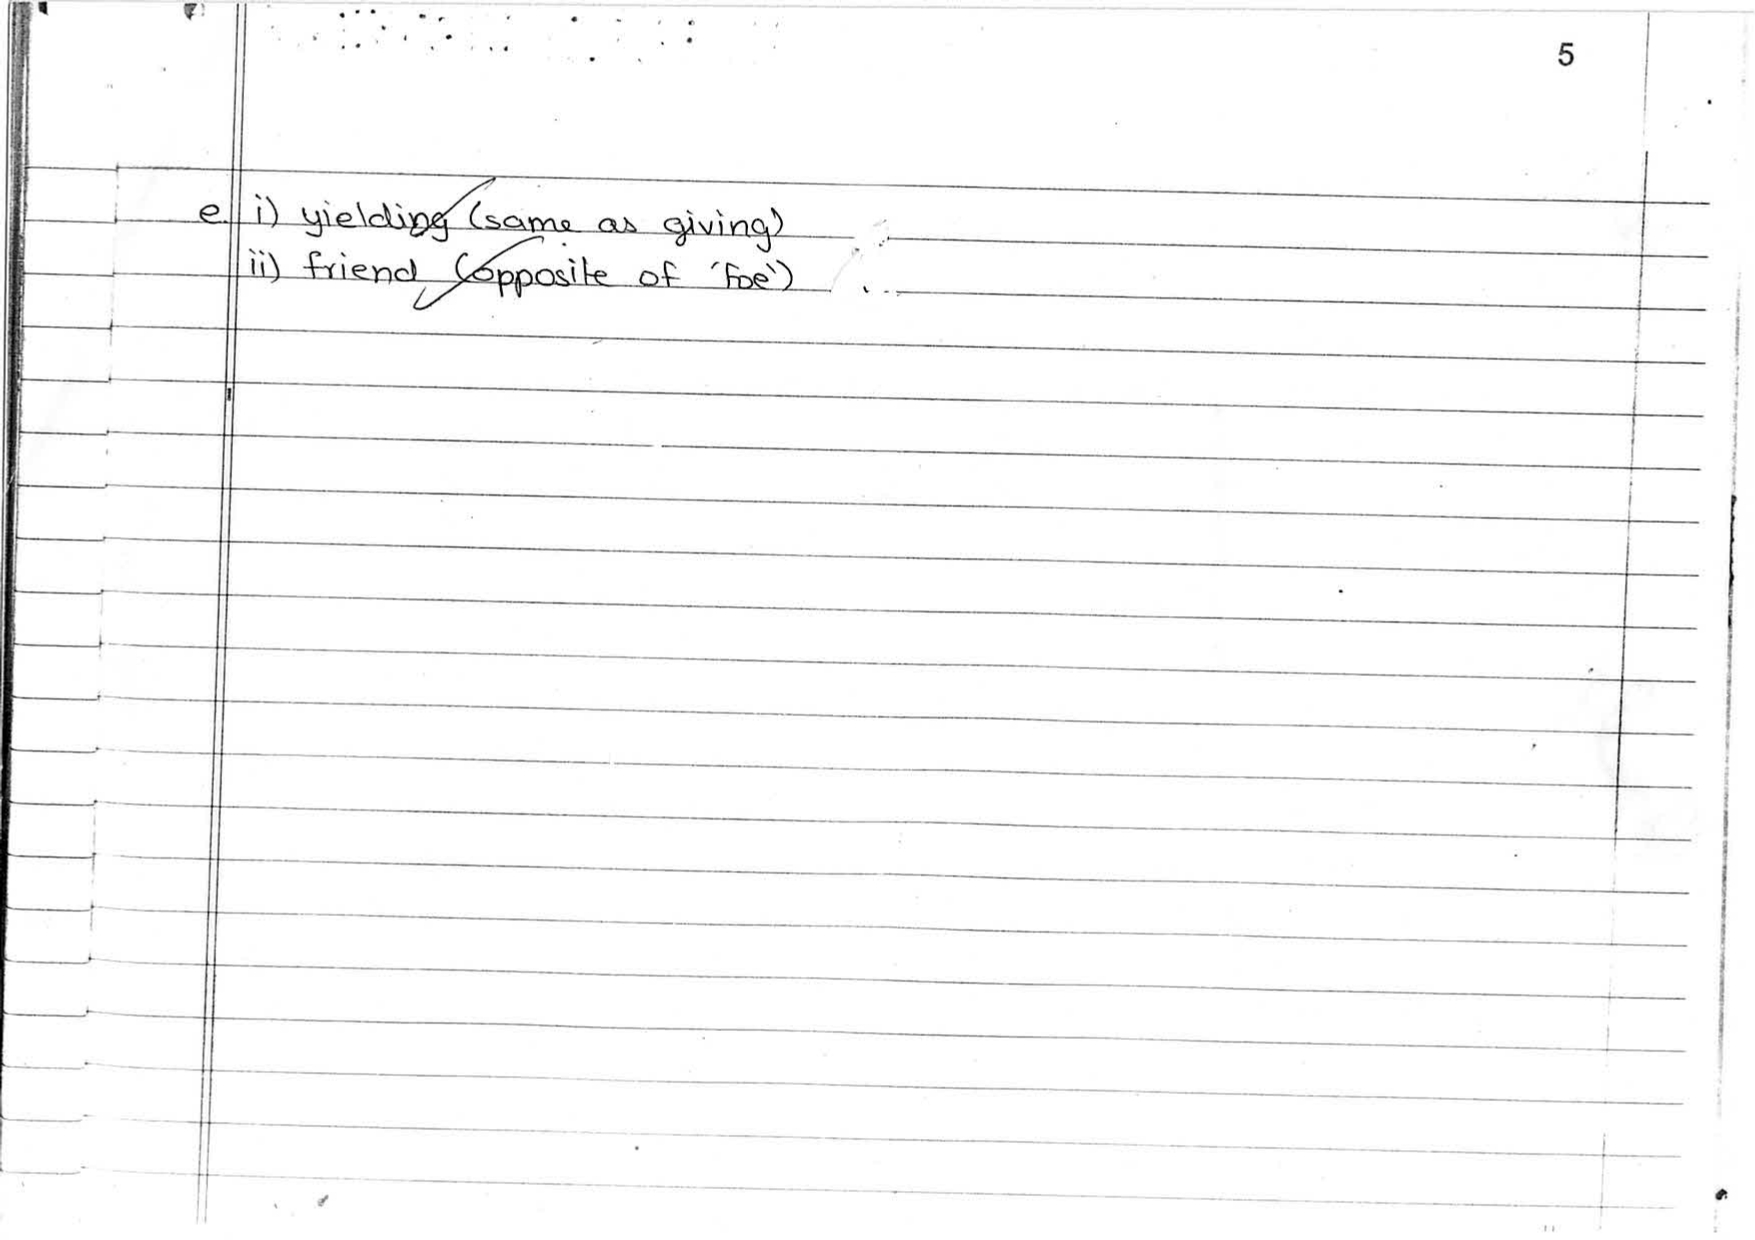 5
e. i) yielding (same as giving)
ii) friend (opposite of 'foe')